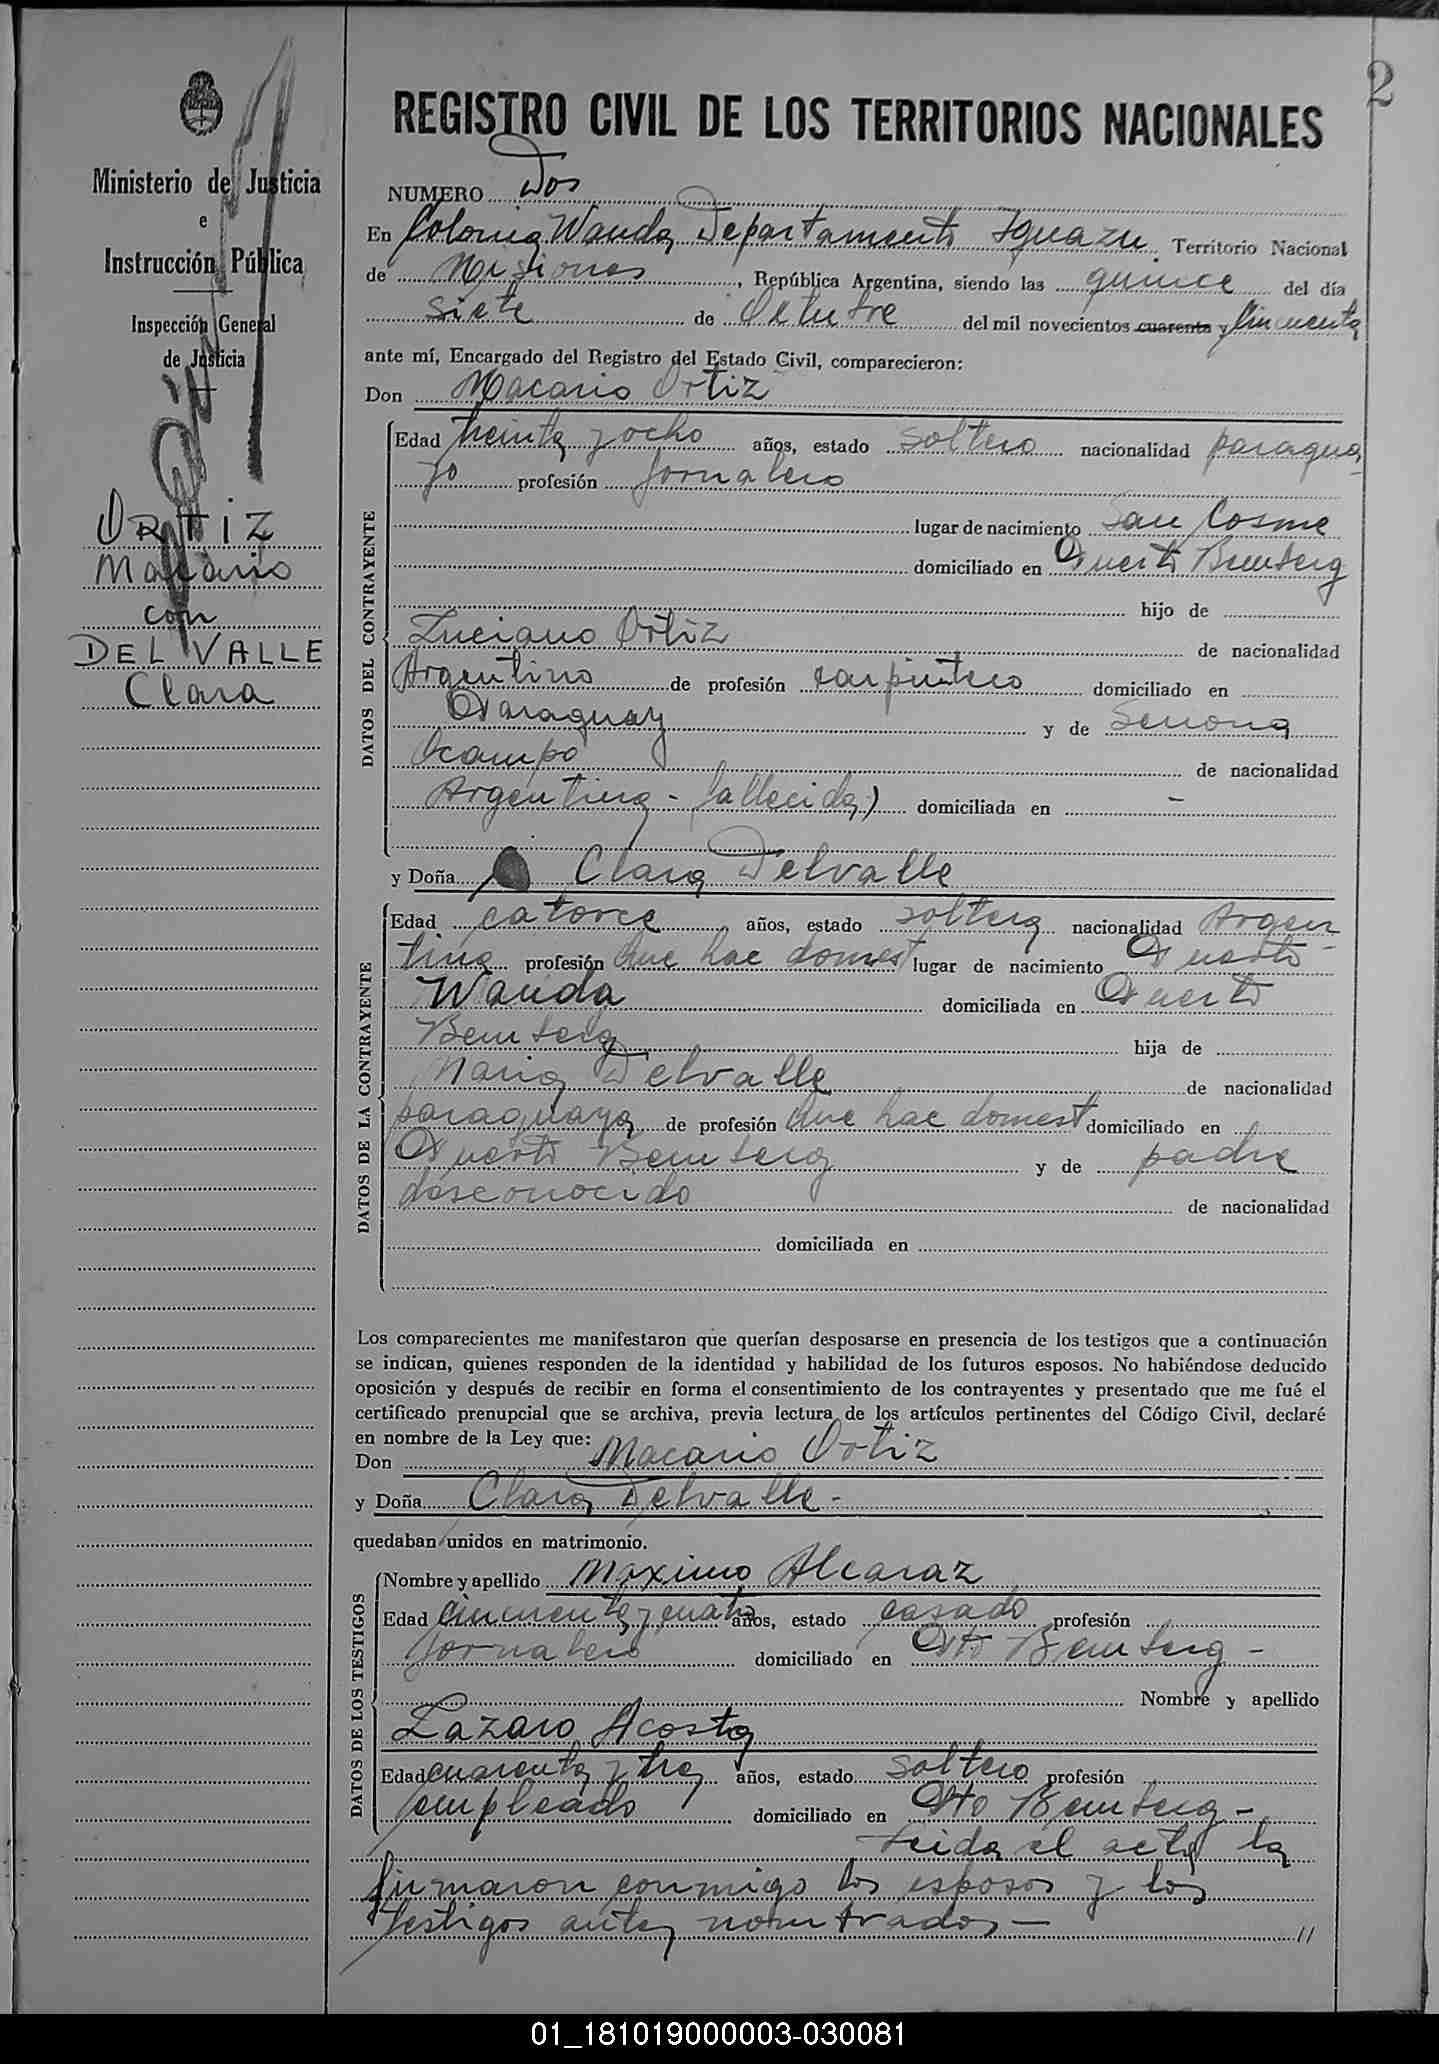 2
Ministerio de Justicia
e
Instrucción Pública
Inspección General
de Justicia
ORTIZ
Macario
con
DEL VALLE
Clara
REGISTRO CIVIL DE LOS TERRITORIOS NACIONALES
NUMERO Dos
En Colonia Wanda Departamento Iguazu Territorio Nacional
de Misiones, República Argentina, siendo las quince del día
siete de Octubre del mil novecientos cuarenta y Cincuenta
ante mí, Encargado del Registro del Estado Civil, comparecieron:
Don Macario Ortiz
DATOS DEL CONTRAYENTE
Edad treinta y ocho años, estado soltero nacionalidad paragua
yo profesión Jornalero
lugar de nacimiento San Cosme
domiciliado en Puerto Bemberg
hijo de
Luciano Ortiz de nacionalidad
Argentino de profesión carpintero domiciliado en
Paraguay y de
Ocampo de nacionalidad
Argentina - fallecida) domiciliada en -
y Doña Clara Delvalle
DATOS DE LA CONTRAYENTE
Edad catorce años, estado soltera nacionalidad Argen
tina profesión que hac domest lugar de nacimiento Puerto
Wanda domiciliada en Puerto
Bemberg hija de
Maria Delvalle de nacionalidad
paraguaya de profesión que hac domest domiciliado en
Puerto Bemberg y de padre
desconocido de nacionalidad
domiciliada en
Los comparecientes me manifestaron que querían desposarse en presencia de los testigos que a continuación
se indican, quienes responden de la identidad y habilidad de los futuros esposos. No habiéndose deducido
oposición y después de recibir en forma el consentimiento de los contrayentes y presentado que me fué el
certificado prenupcial que se archiva, previa lectura de los artículos pertinentes del Código Civil, declaré
en nombre de la Ley que:
Don Macario Ortiz
y Doña Clara Delvalle -
quedaban unidos en matrimonio.
DATOS DE LOS TESTIGOS
Nombre y apellido Maximo Alcaraz
Edad cincuenta y cuatro años, estado casado profesión
Jornalero domiciliado en Pto Bemberg -
Nombre y apellido
Lazaro Acosta
Edad cuarenta y tres años, estado soltero profesión
empleado domiciliado en Pto Bemberg -
Leida el acta la
firmaron conmigo los esposos y los
testigos antes nombrados - //
01_181019000003-030081